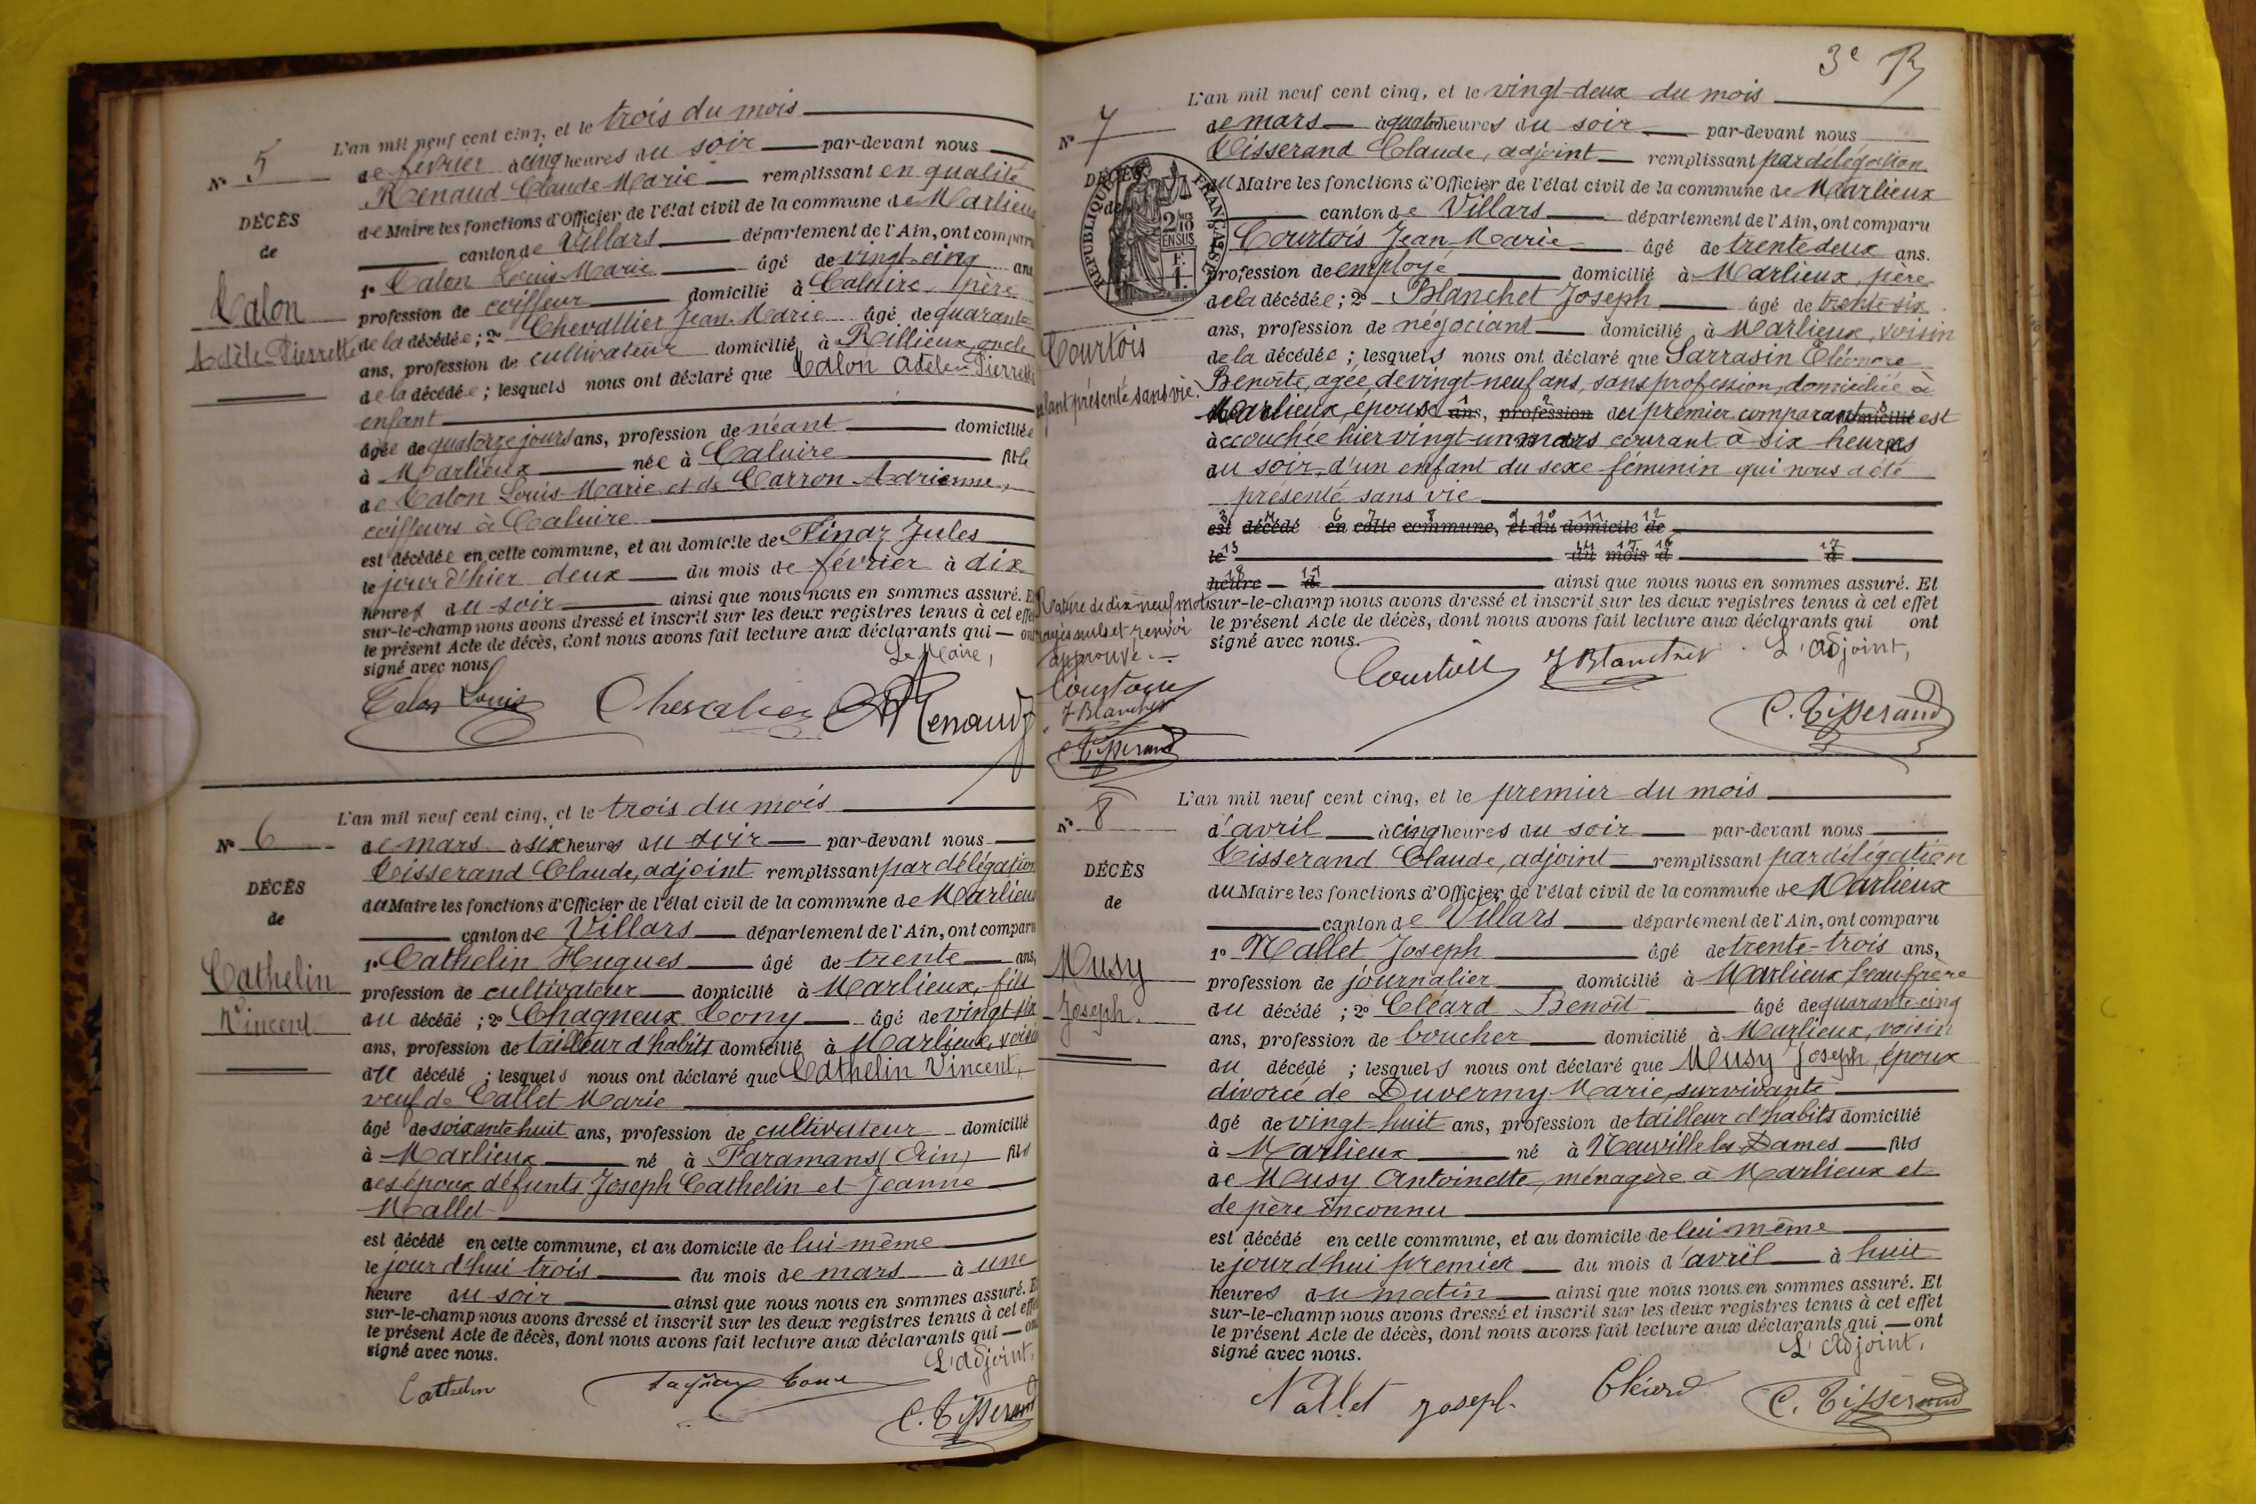 N° 5
DÉCÈS
de
Talon
Adèle Pierrette
L'an mil neuf cent cinq, et le trois du mois
de février à cinq heures du soir par-devant nous
Renaud Claude Marie remplissant en qualité
de Maire les fonctions d'Officier de l'état civil de la commune de Marlieux
canton de Villars département de l'Ain, ont comparu
1° Talon Louis Marie âgé de vingt-cinq ans
profession de coiffeur domicilié à Caluire, père
de la décédée; 2° Chevallier Jean-Marie âgé de quarante
ans, profession de cultivateur domicilié à Rillieux, oncle
de la décédée; lesquels nous ont déclaré que Talon Adèle Pierrette
enfant
âgée de quatorze jours ans, profession de néant domiciliée
à Marlieux née à Caluire fille
de Talon Louis Marie et de Carron Adrienne,
coiffeurs à Caluire
est décédée en cette commune, et au domicile de Pinaz Jules
le jour d'hier deux du mois de février à dix
heures du soir ainsi que nous nous en sommes assuré. Et
sur-le-champ nous avons dressé et inscrit sur les deux registres tenus à cet effet
le présent Acte de décès, dont nous avons fait lecture aux déclarants qui ont
signé avec nous
Le Maire,
Talon Louis Chevalier Renaud
N° 6
DÉCÈS
de
Cathelin
Vincent
L'an mil neuf cent cinq, et le trois du mois
de mars à six heures du soir par-devant nous
Tisserand Claude, adjoint remplissant par délégation
du Maire les fonctions d'Officier de l'état civil de la commune de Marlieux
canton de Villars département de l'Ain, ont comparu
1° Cathelin Hugues âgé de trente ans,
profession de cultivateur domicilié à Marlieux, fils
du décédé; 2° Chagneux Tony âgé de vingt-six
ans, profession de tailleur d'habits domicilié à Marlieux, voisin
du décédé; lesquels nous ont déclaré que Cathelin Vincent,
veuf de Callet Marie
âgé de soixante huit ans, profession de cultivateur domicilié
à Marlieux né à Faramans (Ain) fils
des époux défunts Joseph Cathelin et Jeanne
Mallet
est décédé en cette commune, et au domicile de lui-même
le jour d'hui trois du mois de mars à une
heure du soir ainsi que nous nous en sommes assuré. Et
sur-le-champ nous avons dressé et inscrit sur les deux registres tenus à cet effet
le présent Acte de décès, dont nous avons fait lecture aux déclarants qui ont
signé avec nous.
L'Adjoint,
Cathelin
C. Tisserand
3e
N° 7
DÉCÈS
de
RÉPUBLIQUE FRANÇAISE
Courtois
enfant présenté sans vie.
L'an mil neuf cent cinq, et le vingt-deux du mois
de mars à quatre heures du soir par-devant nous
Tisserand Claude, adjoint remplissant par délégation
du Maire les fonctions d'Officier de l'état civil de la commune de Marlieux
canton de Villars département de l'Ain, ont comparu
Courtois Jean-Marie âgé de trente deux ans.
profession de employé domicilié à Marlieux, père
de la décédée; 2° Blanchet Joseph âgé de trente-six
ans, profession de négociant domicilié à Marlieux, voisin
de la décédée; lesquels nous ont déclaré que Sarrasin Eléonore
Benoîte, agée de vingt-neuf ans, sans profession, domiciliée à
Marlieux, épouse ans, profession du premier comparant domicilié est
accouchée hier vingt-un mars courant à six heures
du soir, d'un enfant du sexe féminin qui nous a été
présenté sans vie
est décédé en cette commune, et au domicile de
le du mois d à
heure d ainsi que nous nous en sommes assuré. Et
sur-le-champ nous avons dressé et inscrit sur les deux registres tenus à cet effet
le présent Acte de décès, dont nous avons fait lecture aux déclarants qui ont
signé avec nous.
Rature de dix neuf mots
rayés nuls et renvoi
approuvé.
Courtois
J Blanchet
C Tisserand
L'Adjoint,
Courtois J Blanchet
C. Tisserand
N° 8
DÉCÈS
de
Musy
Joseph.
L'an mil neuf cent cinq, et le premier du mois
d'avril à cinq heures du soir par-devant nous
Tisserand Claude, adjoint remplissant par délégation
du Maire les fonctions d'Officier de l'état civil de la commune de Marlieux
canton de Villars département de l'Ain, ont comparu
1° Nallet Joseph âgé de trente-trois ans,
profession de journalier domicilié à Marlieux, beau frère
du décédé; 2° Cléard Benoît âgé de quarante cinq
ans, profession de boucher domicilié à Marlieux, voisin
du décédé; lesquels nous ont déclaré que Musy Joseph, époux
divorcé de Duvermy Marie, survivante
âgé de vingt-huit ans, profession de tailleur d'habits domicilié
à Marlieux né à Neuville les Dames fils
de Musy Antoinette, ménagère à Marlieux et
de père inconnu
est décédé en cette commune, et au domicile de lui-même
le jour d'hui premier du mois d'avril à huit
heures du matin ainsi que nous nous en sommes assuré. Et
sur-le-champ nous avons dressé et inscrit sur les deux registres tenus à cet effet
le présent Acte de décès, dont nous avons fait lecture aux déclarants qui ont
signé avec nous.
L'Adjoint,
Nallet Joseph Cléard C. Tisserand